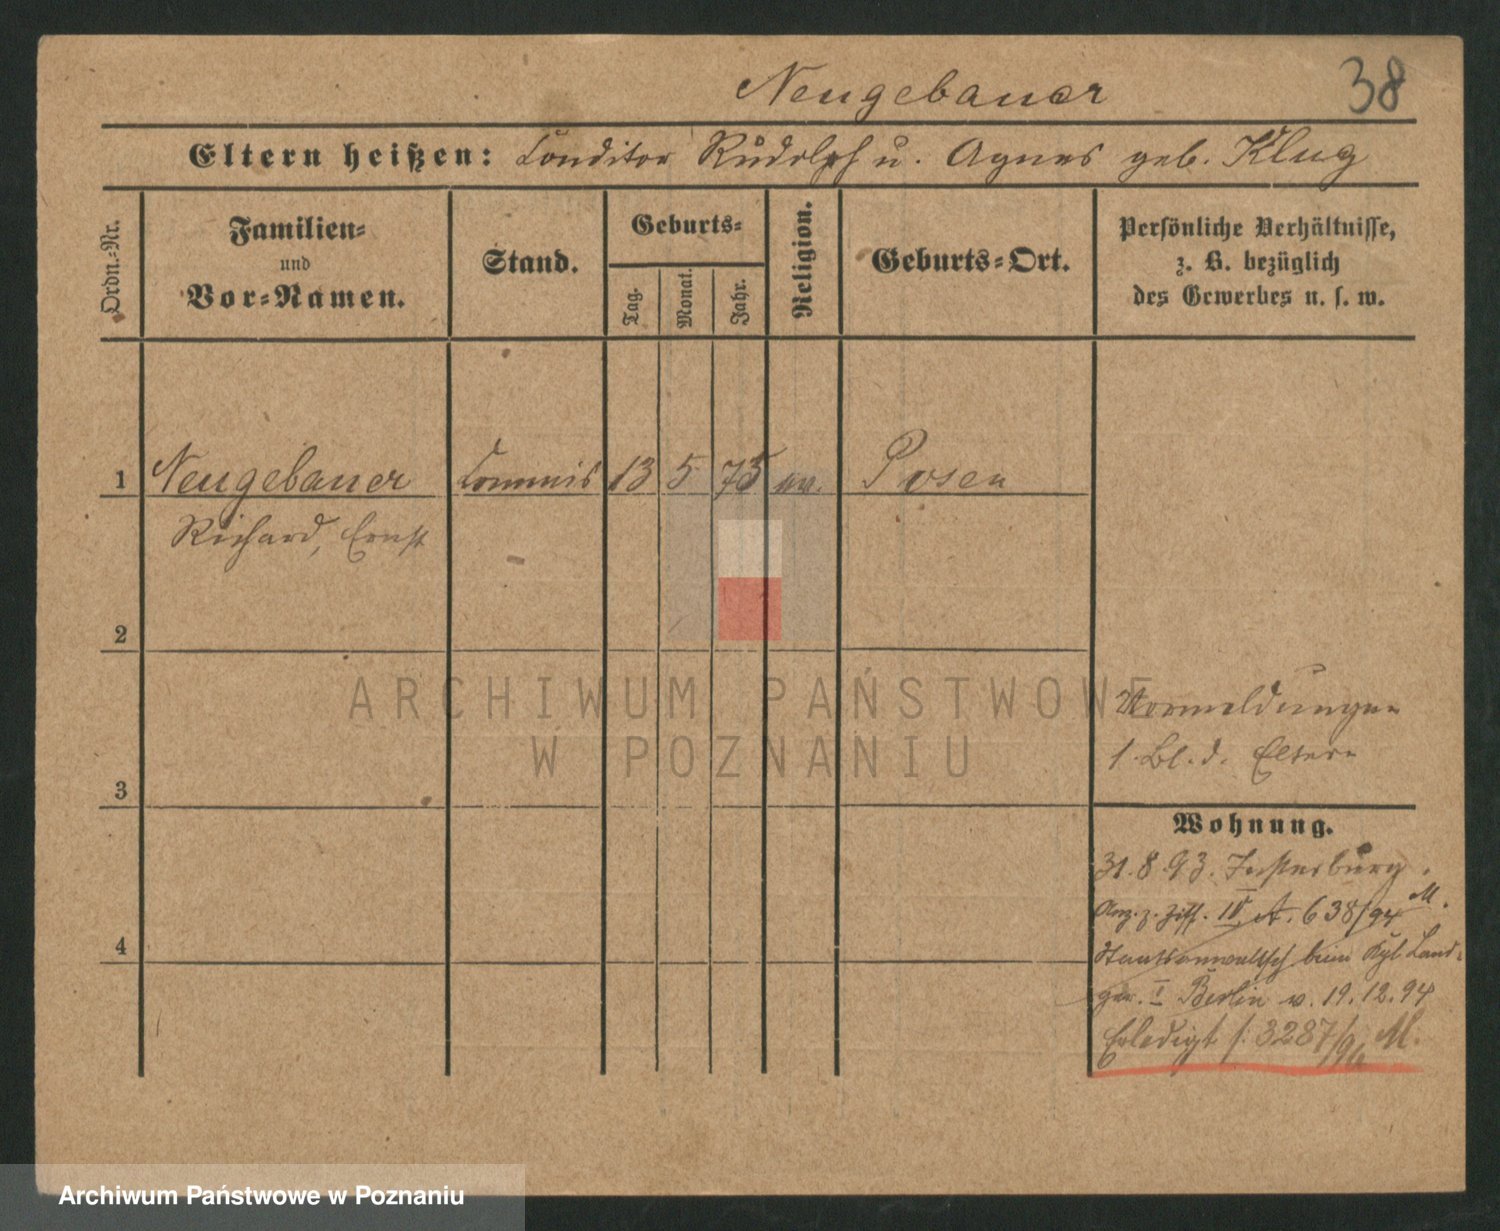 Neugebauer
38
Eltern heißen: Conditor Rudolph u. Agnes geb. Klug
Ordn.-Nr.
Familien-
und
Vor-Namen.
Stand.
Geburts-
Tag.
Monat.
Jahr.
Religion.
Geburts-Ort.
Persönliche Verhältnisse,
z. B. bezüglich
des Gewerbes u. s. w.
1 Neugebauer Commis 13 5 75 ev. Posen
Richard, Ernst
2
ARCHIWUM PAŃSTWOWE
W POZNANIU
Vormeldungen
1 Bl. d. Eltern
3
Wohnung.
31.8.93. Insterburg.
Anz. z. Ziff. IV. A. 638/94 M.
4
Staatsanwaltsch beim Kgl Land-
ger. I Berlin v. 19.12.94
Erledigt f. 3287/96 M.
Archiwum Państwowe w Poznaniu